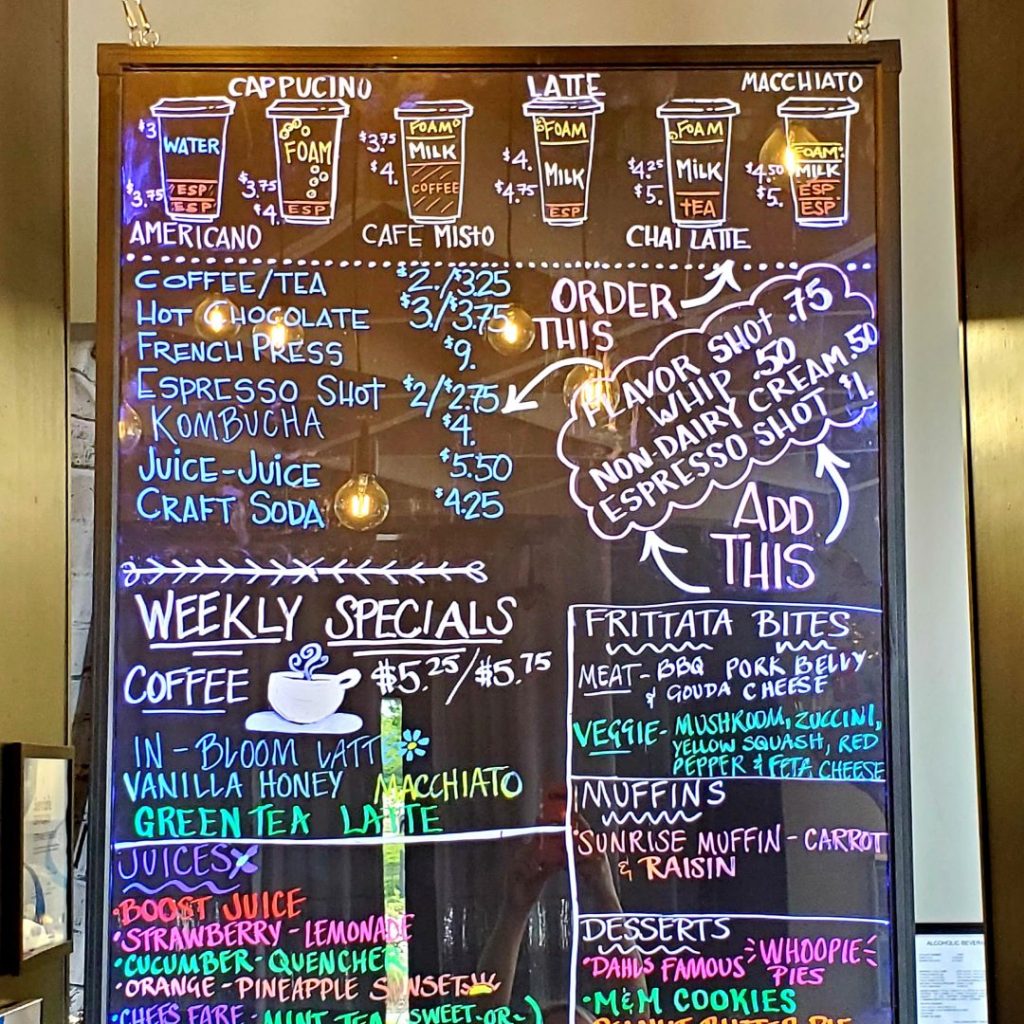 CAPPUCINO LATTE MACCHIATO
$3 WATER
$3.75 ESP
AMERICANO
FOAM
$3.75
$4. ESP
$3.75 FOAM
$4. MILK
COFFEE
CAFE MISTO
FOAM
$4. MILK
$4.75 ESP
FOAM
$4.25 MILK
$5. TEA
CHAI LATTE
FOAM
$4.50 MILK
$5. ESP
ESP
COFFEE/TEA $2./$3.25
HOT CHOCOLATE $3./$3.75
FRENCH PRESS $9.
ESPRESSO SHOT $2/$2.75
KOMBUCHA $4.
JUICE-JUICE $5.50
CRAFT SODA $4.25
ORDER
THIS
FLAVOR SHOT .75
WHIP .50
NON-DAIRY CREAM .50
ESPRESSO SHOT $1.
ADD
THIS
WEEKLY SPECIALS
COFFEE $5.25/$5.75
IN-BLOOM LATTE
VANILLA HONEY MACCHIATO
GREEN TEA LATTE
JUICES
•BOOST JUICE
•STRAWBERRY-LEMONADE
•CUCUMBER-QUENCHER
•ORANGE-PINEAPPLE SUNSET
•CHEFS FARE-MINT TEA (SWEET-OR-)
FRITTATA BITES
MEAT-BBQ PORK BELLY
& GOUDA CHEESE
VEGGIE-MUSHROOM, ZUCCINI,
YELLOW SQUASH, RED
PEPPER & FETA CHEESE
MUFFINS
•SUNRISE MUFFIN-CARROT
& RAISIN
DESSERTS
•DAHLS FAMOUS WHOOPIE
PIES
•M&M COOKIES
PEANUT BUTTER PIE
ALCOHOLIC BEVER